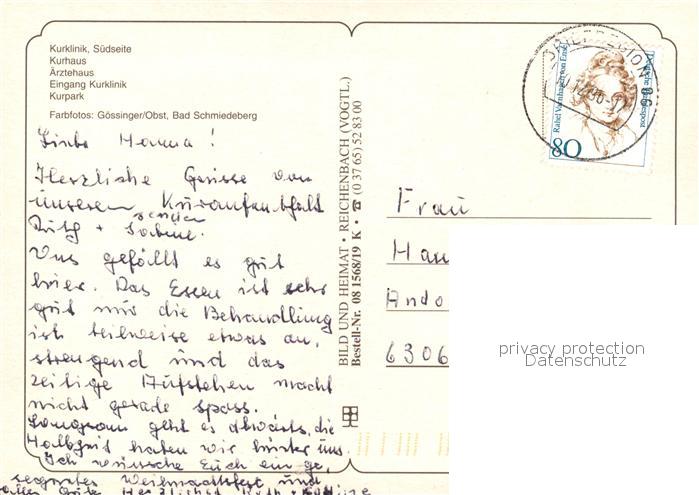 Kurklinik, Südseite
Kurhaus
Ärztehaus
Eingang Kurklinik
Kurpark
Farbfotos: Gössinger/Obst, Bad Schmiedeberg
Liebe Hanna!
Herzliche Grüsse von
unserem Kuraufenthalt
senden
Ruth + Sabine.
Uns gefällt es gut
hier. Das Essen ist sehr
gut nur die Behandlung
ist teilweise etwas an,
strengend und das
zeitige Aufstehen macht
nicht gerade spass.
Langsam geht es abwärts, die
Halbzeit haben wir hinter uns.
Ich wünsche Euch ein ge,
segnetes Weihnachtsfest und
alles Gute Herzlichst Ruth + Sabine
BILD UND HEIMAT • REICHENBACH (VOGTL.)
Bestell-Nr. 08 1568/19 K • ☎ (0 37 65) 52 83 00
BRIEFREGION
Rahel Varnhagen von Ense
Deutsche Bundespost
80
Frau
Han
Ando
6306
privacy protection
Datenschutz